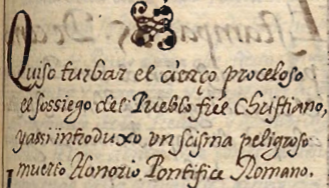 Quiso turbar el cierço proceloso
el sossiego del Pueblo fiel Christiano,
y assi introduxo vn scisma peligroso
muerto Honorio Pontifice Romano.